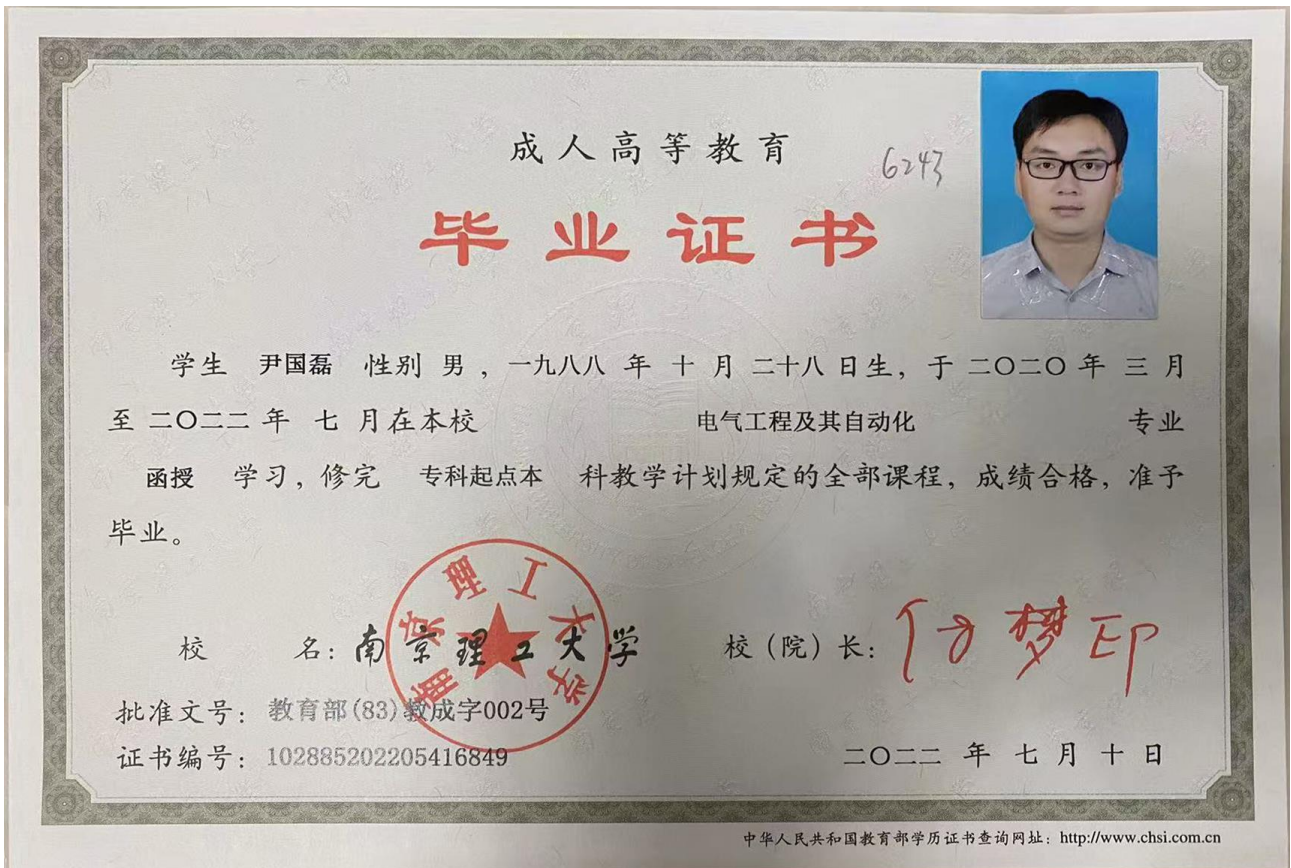 成人高等教育
6243
毕业证书
学生 尹国磊 性别 男，一九八八 年 十 月 二十八 日生，于 二〇二〇 年 三 月
至 二〇二二 年 七 月在本校 电气工程及其自动化 专业
函授 学习，修完 专科起点本 科教学计划规定的全部课程，成绩合格，准予
毕业。
南京理工大学
校 名：南京理工大学 校（院）长：付梦印
批准文号：教育部(83)教成字002号
证书编号：102885202205416849
二〇二二 年 七 月 十 日
中华人民共和国教育部学历证书查询网址：http://www.chsi.com.cn